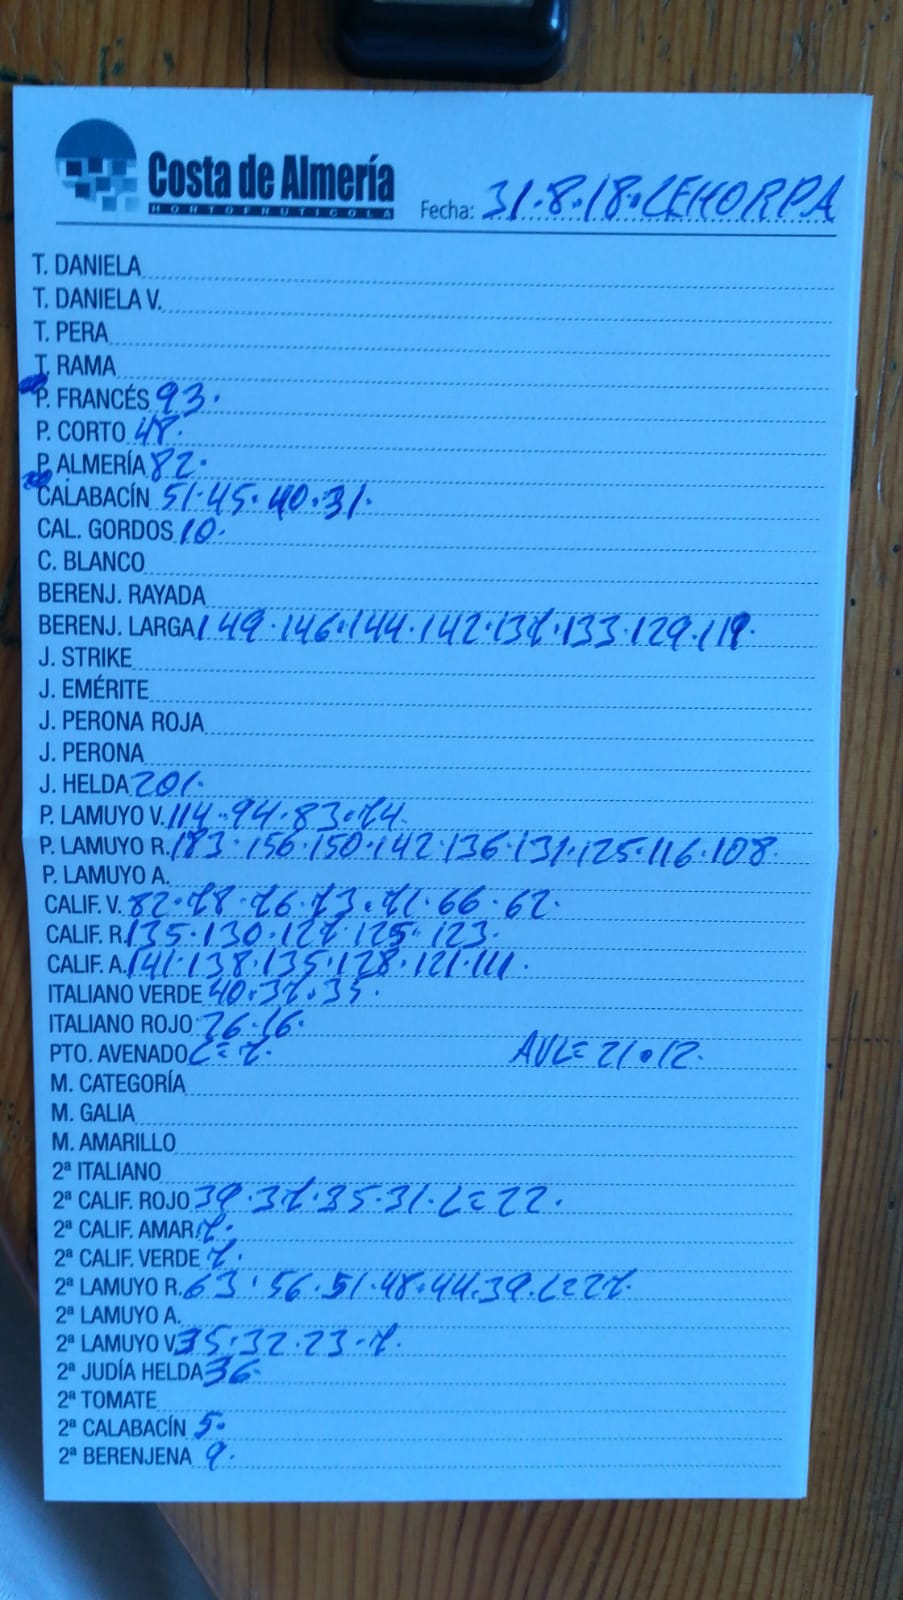 Costa de Almería
HORTOFRUTICOLA
Fecha: 31.8.18. CEHORPA
T. DANIELA
T. DANIELA V.
T. PERA
T. RAMA
P. FRANCÉS 93.
P. CORTO 48.
P. ALMERÍA 82.
CALABACÍN 51.45.40.31.
CAL. GORDOS 10.
C. BLANCO
BERENJ. RAYADA
BERENJ. LARGA 149.146.144.142.137.133.129.119.
J. STRIKE
J. EMÉRITE
J. PERONA ROJA
J. PERONA
J. HELDA 201.
P. LAMUYO V. 114.94.83.74.
P. LAMUYO R. 183.156.150.142.136.131.125.116.108.
P. LAMUYO A.
CALIF. V. 82.78.76.73.71.66.62.
CALIF. R. 135.130.127.125.123.
CALIF. A. 141.138.135.128.121.111.
ITALIANO VERDE 40.37.35.
ITALIANO ROJO 26.16.
PTO. AVENADO C=7. AVL=21.12.
M. CATEGORÍA
M. GALIA
M. AMARILLO
2ª ITALIANO
2ª CALIF. ROJO 39.37.35.31.C=22.
2ª CALIF. AMAR. 7.
2ª CALIF. VERDE 7.
2ª LAMUYO R. 63.56.51.48.44.39.C=27.
2ª LAMUYO A.
2ª LAMUYO V. 35.32.23.7.
2ª JUDÍA HELDA 36.
2ª TOMATE
2ª CALABACÍN 5.
2ª BERENJENA 9.